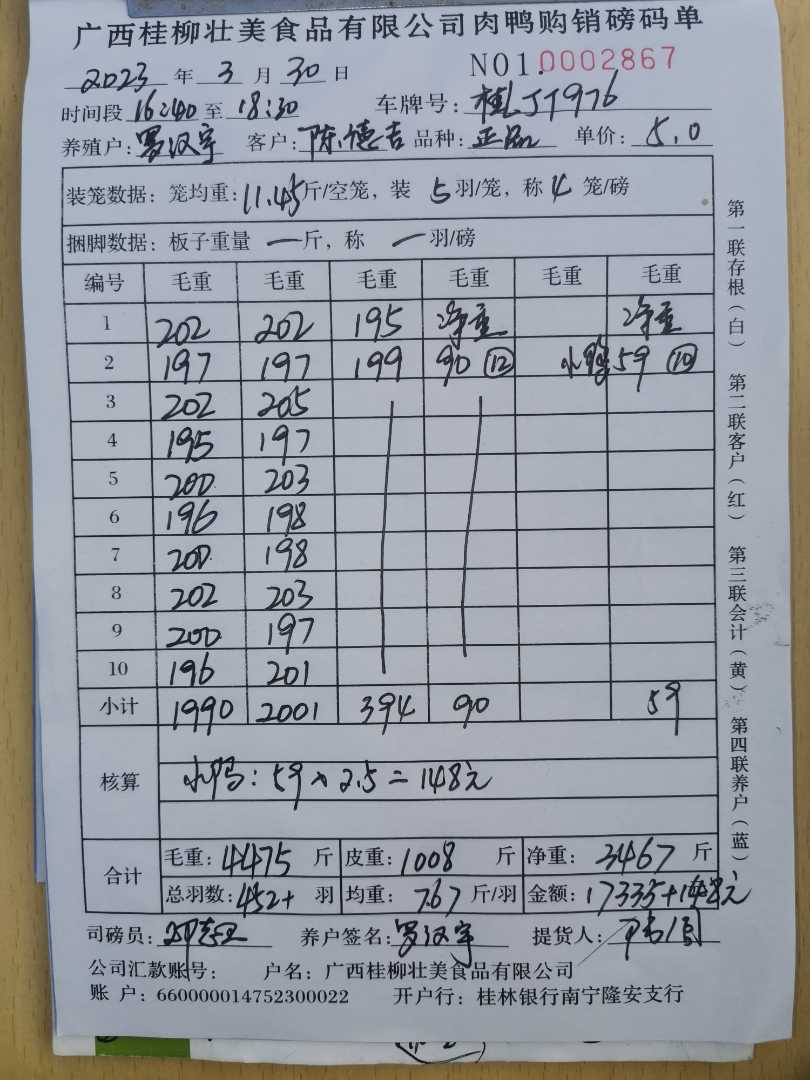 广西桂柳壮美食品有限公司肉鸭购销磅码单
2023 年 3 月 30 日 NO1.0002867
时间段 16:40 至 18:30 车牌号: 桂JT976
养殖户: 罗汉宇 客户: 陈德吉 品种: 正品 单价: 5.0
装笼数据: 笼均重: 11.45 斤/空笼, 装 5 羽/笼, 称 4 笼/磅
捆脚数据: 板子重量 一 斤, 称 一 羽/磅
编号 毛重 毛重 毛重 毛重 毛重 毛重
1 202 202 195 净重 净重
2 197 197 199 90 ⑫ 小鸭 59 ⑩
3 202 205
4 195 197
5 200 203
6 196 198
7 200 198
8 202 203
9 200 197
10 196 201
小计 1990 2001 394 90 59
核算 小鸭: 59×2.5=148元
合计 毛重: 4475 斤 皮重: 1008 斤 净重: 3467 斤
总羽数: 452+ 羽 均重: 7.67 斤/羽 金额: 17335+148元
司磅员: 养户签名: 罗汉宇 提货人:
公司汇款账号: 户名: 广西桂柳壮美食品有限公司
账 户: 660000014752300022 开户行: 桂林银行南宁隆安支行
第一联存根(白) 第二联客户(红) 第三联会计(黄) 第四联养户(蓝)